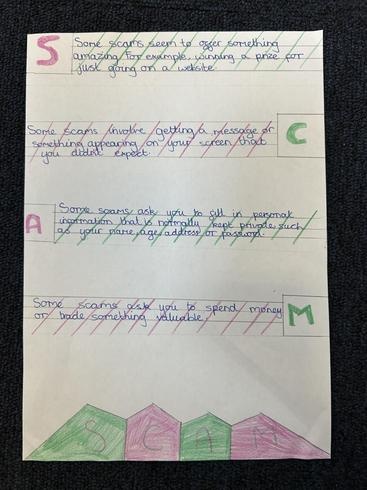 S
Some scams seem to offer something
amazing for example, winning a prize for
just going on a website
Some scams involve getting a message or
something appearing on your screen that
you didn't expect.
C
A
Some scams ask you to fill in personal
information that is normally kept private such
as your name, age, address or password.
Some scams ask you to spend money
or trade something valuable.
M
S C A M